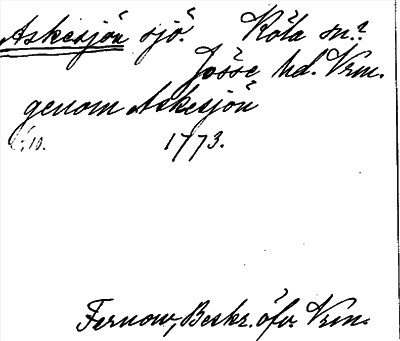 Askesjön sjö. Köla sn.?
Jösse hd. Vrm.
genom Askesjön
s. 10. 1773.
Fernow, Beskr. öfv. Vrm.